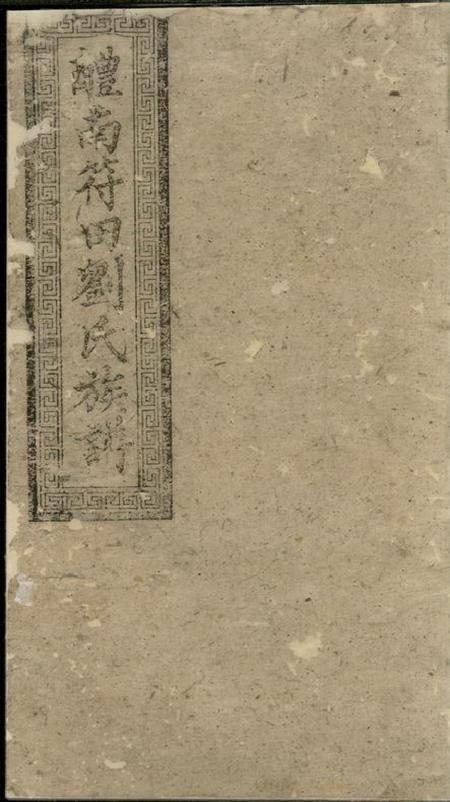 醴南符田劉氏族譜